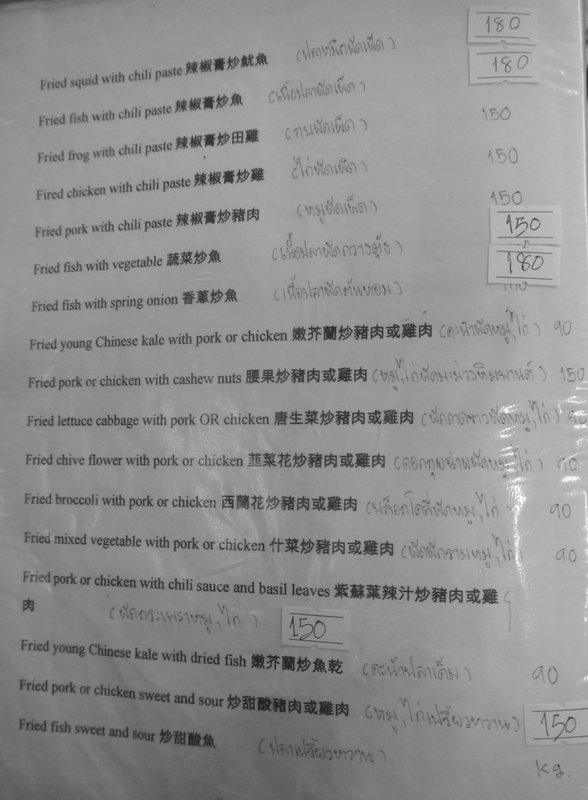 Fried squid with chili paste 辣椒膏炒魷魚 (ปลาหมึกผัดเผ็ด) 180
Fried fish with chili paste 辣椒膏炒魚 (เนื้อปลาผัดเผ็ด) 180
Fried frog with chili paste 辣椒膏炒田雞 (กบผัดเผ็ด) 150
Fired chicken with chili paste 辣椒膏炒雞 (ไก่ผัดเผ็ด) 150
Fried pork with chili paste 辣椒膏炒豬肉 (หมูผัดเผ็ด) 150
Fried fish with vegetable 蔬菜炒魚 (เนื้อปลาผัดกวางตุ้ง) 150
Fried fish with spring onion 香蔥炒魚 (เนื้อปลาผัดต้นหอม) 180
Fried young Chinese kale with pork or chicken 嫩芥蘭炒豬肉或雞肉 (คะน้าผัดหมู,ไก่) 90
Fried pork or chicken with cashew nuts 腰果炒豬肉或雞肉 (หมู,ไก่ผัดมะม่วงหิมพานต์) 150
Fried lettuce cabbage with pork OR chicken 唐生菜炒豬肉或雞肉 (ผักกาดขาวผัดหมู,ไก่) 90
Fried chive flower with pork or chicken 韮菜花炒豬肉或雞肉 (ดอกกุยฉ่ายผัดหมู,ไก่) 90
Fried broccoli with pork or chicken 西蘭花炒豬肉或雞肉 (บล็อกโคลี่ผัดหมู,ไก่) 90
Fried mixed vegetable with pork or chicken 什菜炒豬肉或雞肉 (ผัดผักรวมหมู,ไก่) 90
Fried pork or chicken with chili sauce and basil leaves 紫蘇葉辣汁炒豬肉或雞
肉 (ผัดกระเพราหมู,ไก่) 150
Fried young Chinese kale with dried fish 嫩芥蘭炒魚乾 (คะน้าปลาเค็ม) 90
Fried pork or chicken sweet and sour 炒甜酸豬肉或雞肉 (หมู,ไก่เปรี้ยวหวาน) 150
Fried fish sweet and sour 炒甜酸魚 (ปลาเปรี้ยวหวาน) kg.